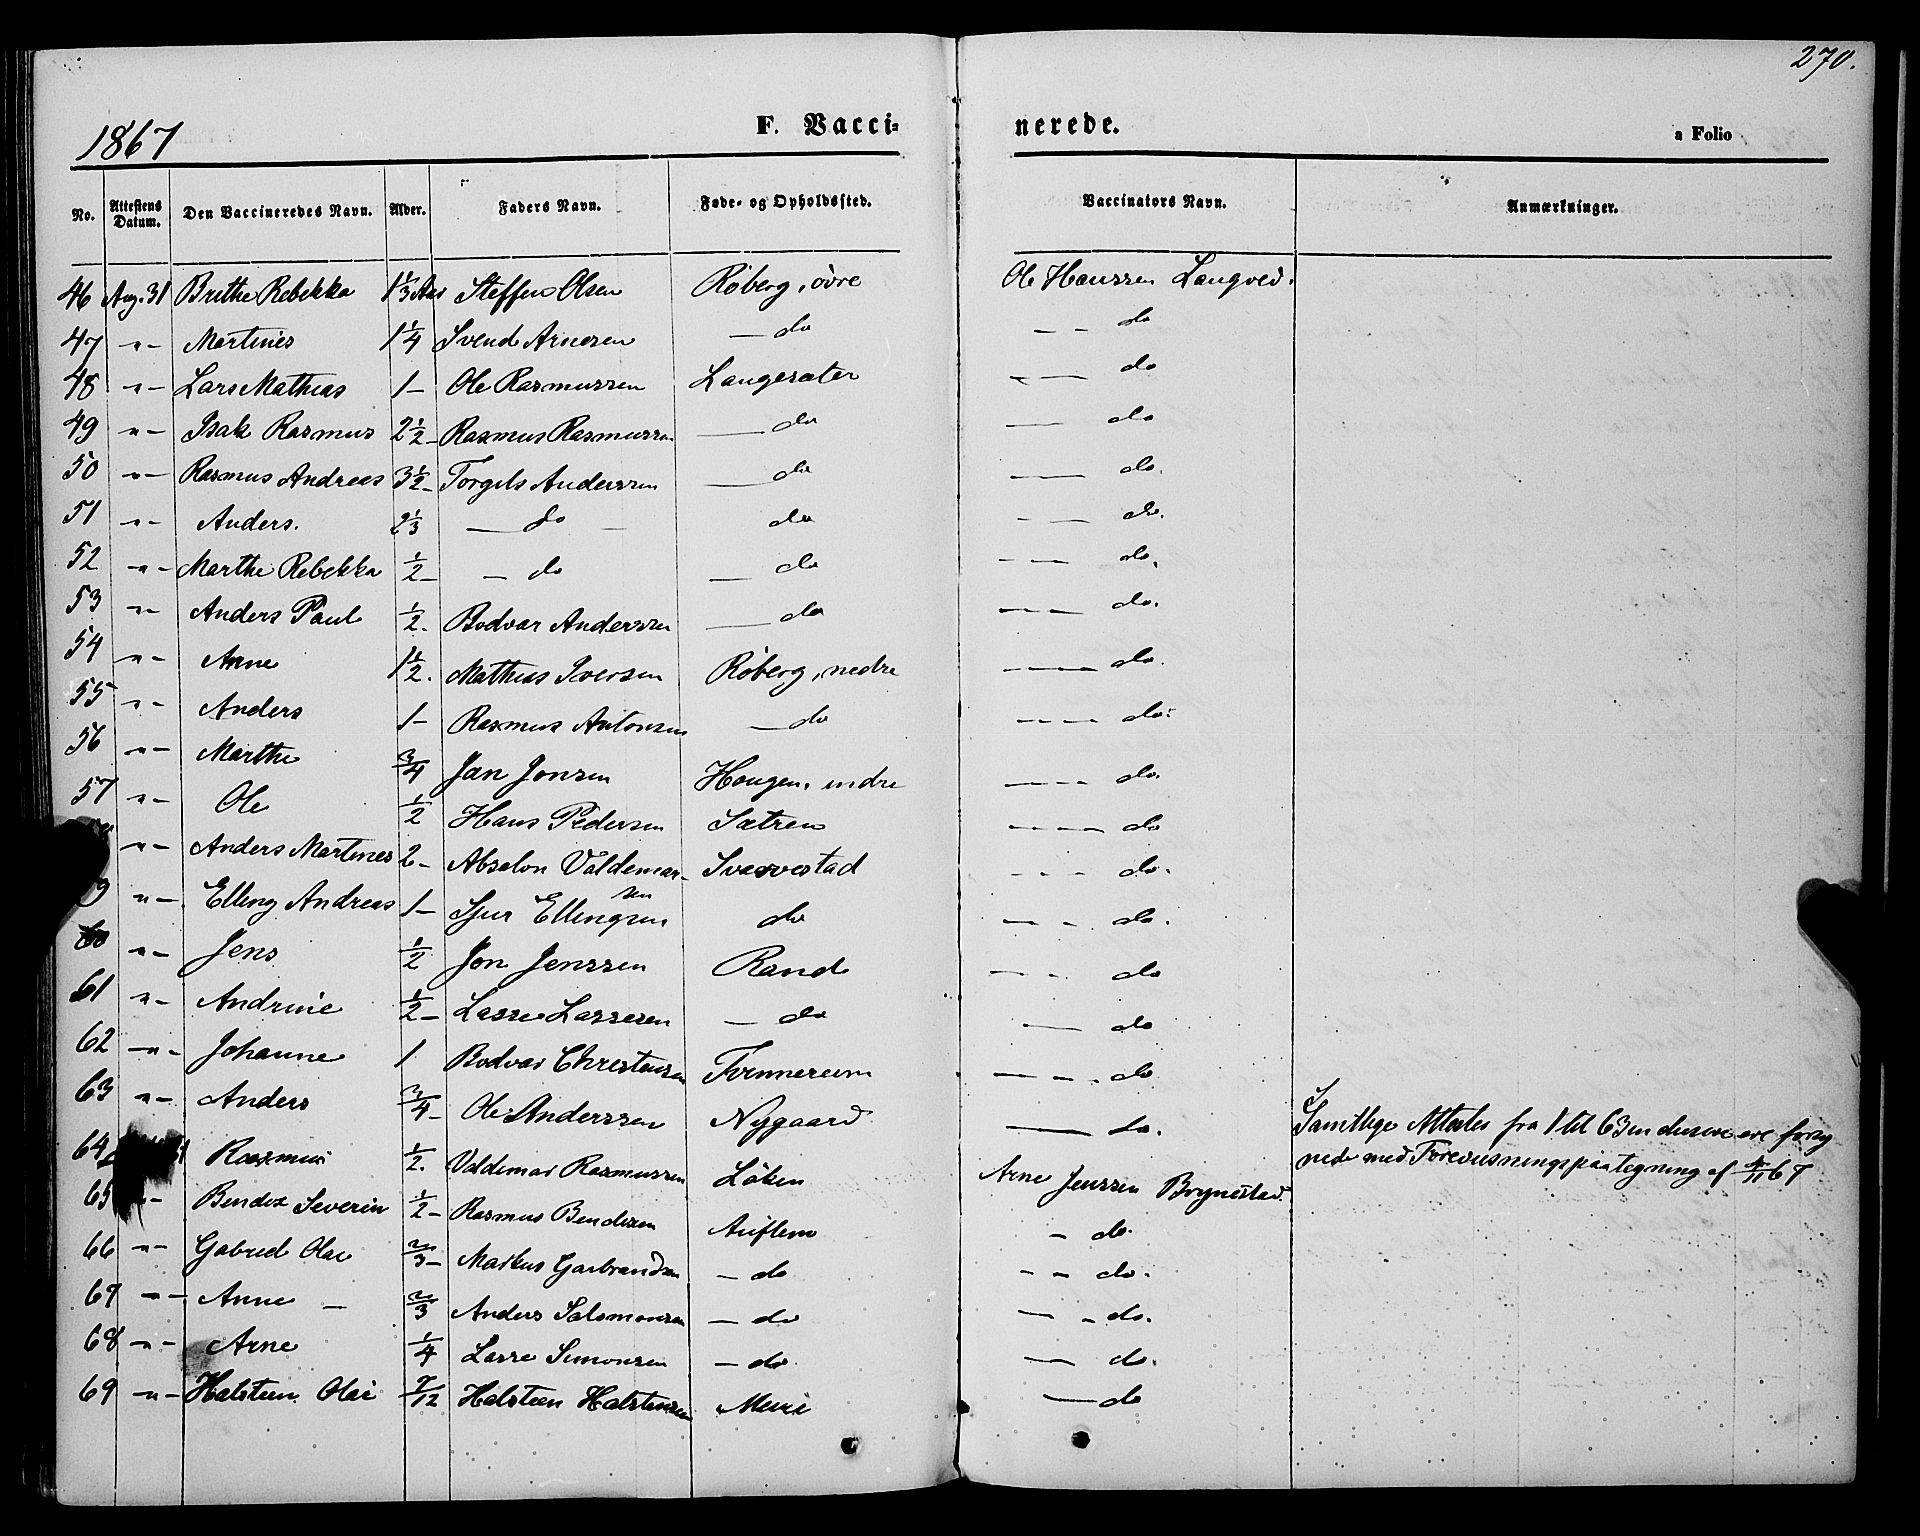 270.
1867 F. Vacci= nerede. a Folio
No. Attestens Datum. Den Vaccineredes Navn. Alder. Faders Navn. Føde- og Opholdssted. Vaccinators Navn. Anmærkninger.
46 Aug. 31 Brithe Rebekka 1 1/3 Aar Steffen Olsen Røberg, øvre Ole Hanssen Langved.
47 -"- Martines 1 1/4 Svend Arnesen — do - - do
48 -"- Lars Mathias 1 - Ole Rasmussen Langesæter — do
49 -"- Isak Rasmus 2 1/2 - Rasmus Rasmussen — do — do
50 -"- Rasmus Andreas 3 1/2 - Torgils Anderssen — do — do.
51 -"- Anders. 2 1/3 — do — do - — do.
52 -"- Marthe Rebekka 1/2 - - do — do - — do.
53 -"- Anders Paul 1/2. Bodvar Anderssen — do — do.
54 -"- Anne 1 1/2. Mathias Iversen Røberg, nedre — do.
55 -"- Anders 1 - Rasmus Antonsen — do - - - do.
56 -"- Marthe 3/4 Jan Jonsen Hougen, indre - - - do.
57 -"- Ole 1/2 Hans Pedersen Sætren - - - do
-"- Anders Martines 2 - Absalon Valdemarsen Svarvestad - - - do.
9 -"- Elling Andreas 1 - Sjur Ellingsen do — - do.
60 -"- Jens 1/2 Jon Jenssen Rand — - - do
61 -"- Andrine 1/2 - Lasse Lassesen — do — do
62 -"- Johanne 1 Bodvar Christensen Tvinnereim — - - do
63 -"- Anders 3/4 - Ole Anderssen Nygaard — do. Samtlige Attester fra 1 til 63 inclusive ere forsy
64 Rasmus 1/2. Valdemar Rasmussen Løken Arne Jenssen Brynestad. nede med Forevisningspaategning af 4/11 67
65 - Bendix Severin 1/2 - Rasmus Bendixen Auflem - do.
66 -"- Gabriel Olai 2/3 - Markus Garbrandsen - do - - do.
67 - - Anne — 2/3 Anders Salomonsen - do — - do.
68 -"- Arne 1/4 Lasse Simonsen - do — do.
69 -"- Halsteen Olai 7/12 Halsteen Halstensen Muri — do